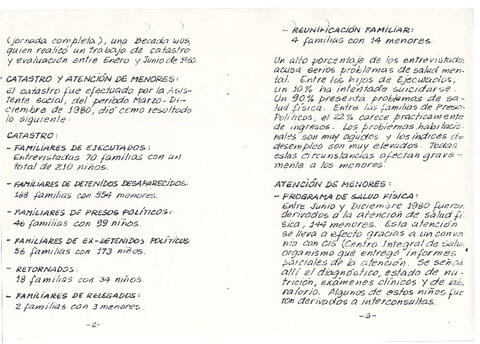 (jornada completa), una Becada WUS,
quien realizó un trabajo de catastro
y evaluación entre Enero y Junio de 1980.
CATASTRO Y ATENCIÓN DE MENORES:
El catastro fue efectuado por la Asis-
tente social, del período Marzo-Di-
ciembre de 1980, dió como resultado
lo siguiente:
CATASTRO:
- FAMILIARES DE EJECUTADOS:
Entrevistadas 70 familias con un
total de 210 niños.
- FAMILIARES DE DETENIDOS DESAPARECIDOS:
188 familias con 554 menores.
- FAMILIARES DE PRESOS POLÍTICOS:
46 familias con 99 niños.
- FAMILIARES DE EX-DETENIDOS POLÍTICOS
56 familias con 173 niños.
- RETORNADOS:
18 familias con 34 niños.
- FAMILIARES DE RELEGADOS:
2 familias con 3 menores.
-2-
- REUNIFICACIÓN FAMILIAR:
4 familias con 14 menores.
Un alto porcentaje de los entrevistados
acusa serios problemas de salud men-
tal. Entre los hijos de Ejecutados,
un 10% ha intentado suicidarse.
Un 90% presenta problemas de sa-
lud física. Entre las familias de Presos
Políticos, el 22% carece prácticamente
de ingresos. Los problemas habitacio-
nales son muy agudos y los índices de
desempleo son muy elevados. Todas
estas circunstancias afectan grave-
mente a los menores.
ATENCIÓN DE MENORES:
- PROGRAMA DE SALUD FÍSICA:
Entre Junio y Diciembre 1980 fueron
derivados a la atención de salud fí-
sica, 144 menores. Esta atención
se lleva a efecto gracias a un conve-
nio con CIS (Centro Integral de Salud)
organismo que entregó informes
parciales de la atención. Se señala
allí el diagnóstico, estado de nu-
trición, exámenes clínicos y de la-
boratorio. Algunos de estos niños fue-
ron derivados a interconsultas.
-3-